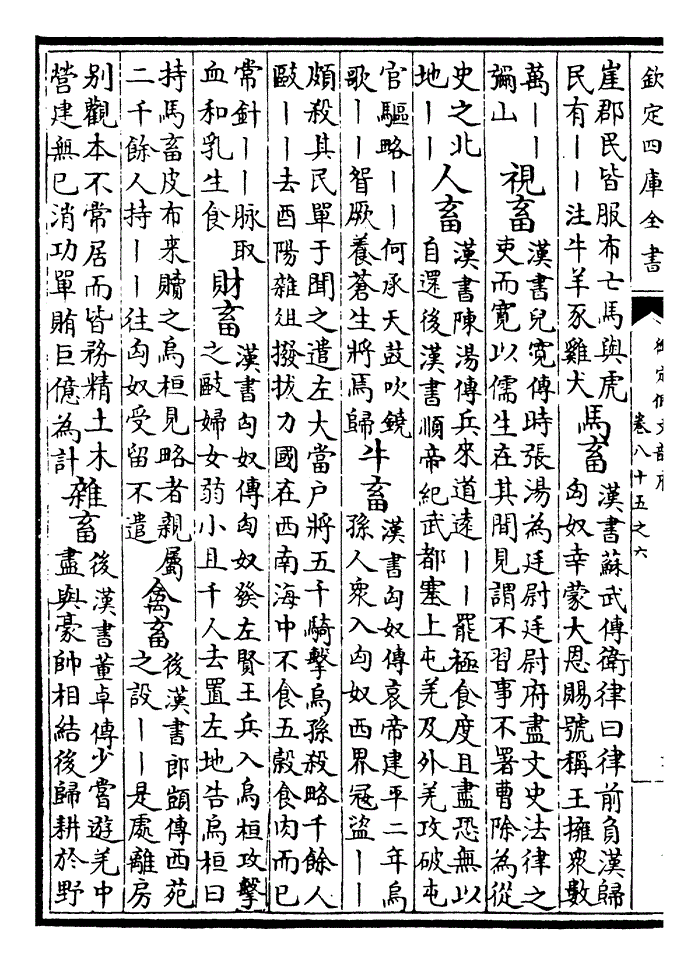 欽定四庫全書
御定佩文韻府
卷八十五之六
崖郡民皆服布亡馬與虎
民有丨丨注牛羊豕雞犬
馬畜
漢書蘇武傳衛律曰律前負漢歸
匈奴幸蒙大恩賜號稱王擁衆數
萬丨丨
彌山
視畜
漢書兒寛傳時張湯為廷尉廷尉府盡文史法律之
吏而寛以儒生在其間見謂不習事不署曹除為從
史之北
地丨丨
人畜
漢書陳湯傳兵來道逺丨丨罷極食度且盡恐無以
自還後漢書順帝紀武都塞上屯羌及外羌攻破屯
官驅略丨丨何承天鼓吹鐃
歌丨丨智厥養蒼生將馬歸
牛畜
漢書匈奴傳哀帝建平二年烏
孫人衆入匈奴西界冦盜丨丨
頗殺其民單于聞之遣左大當户將五千騎擊烏孫殺略千餘人
敺丨丨去酉陽雜俎撥拔力國在西南海中不食五穀食肉而已
常針丨丨脉取
血和乳生食
財畜
漢書匈奴傳匈奴發左賢王兵入烏桓攻擊
之敺婦女弱小且千人去置左地告烏桓曰
持馬畜皮布来贖之烏桓見略者親屬
二千餘人持丨丨往匈奴受留不遣
禽畜
後漢書郎顗傳西苑
之設丨丨是處離房
别觀本不常居而皆務精土木
營建無已消功單賄巨億為計
雜畜
後漢書董卓傳少嘗遊羌中
盡與豪帥相結後歸耕於野